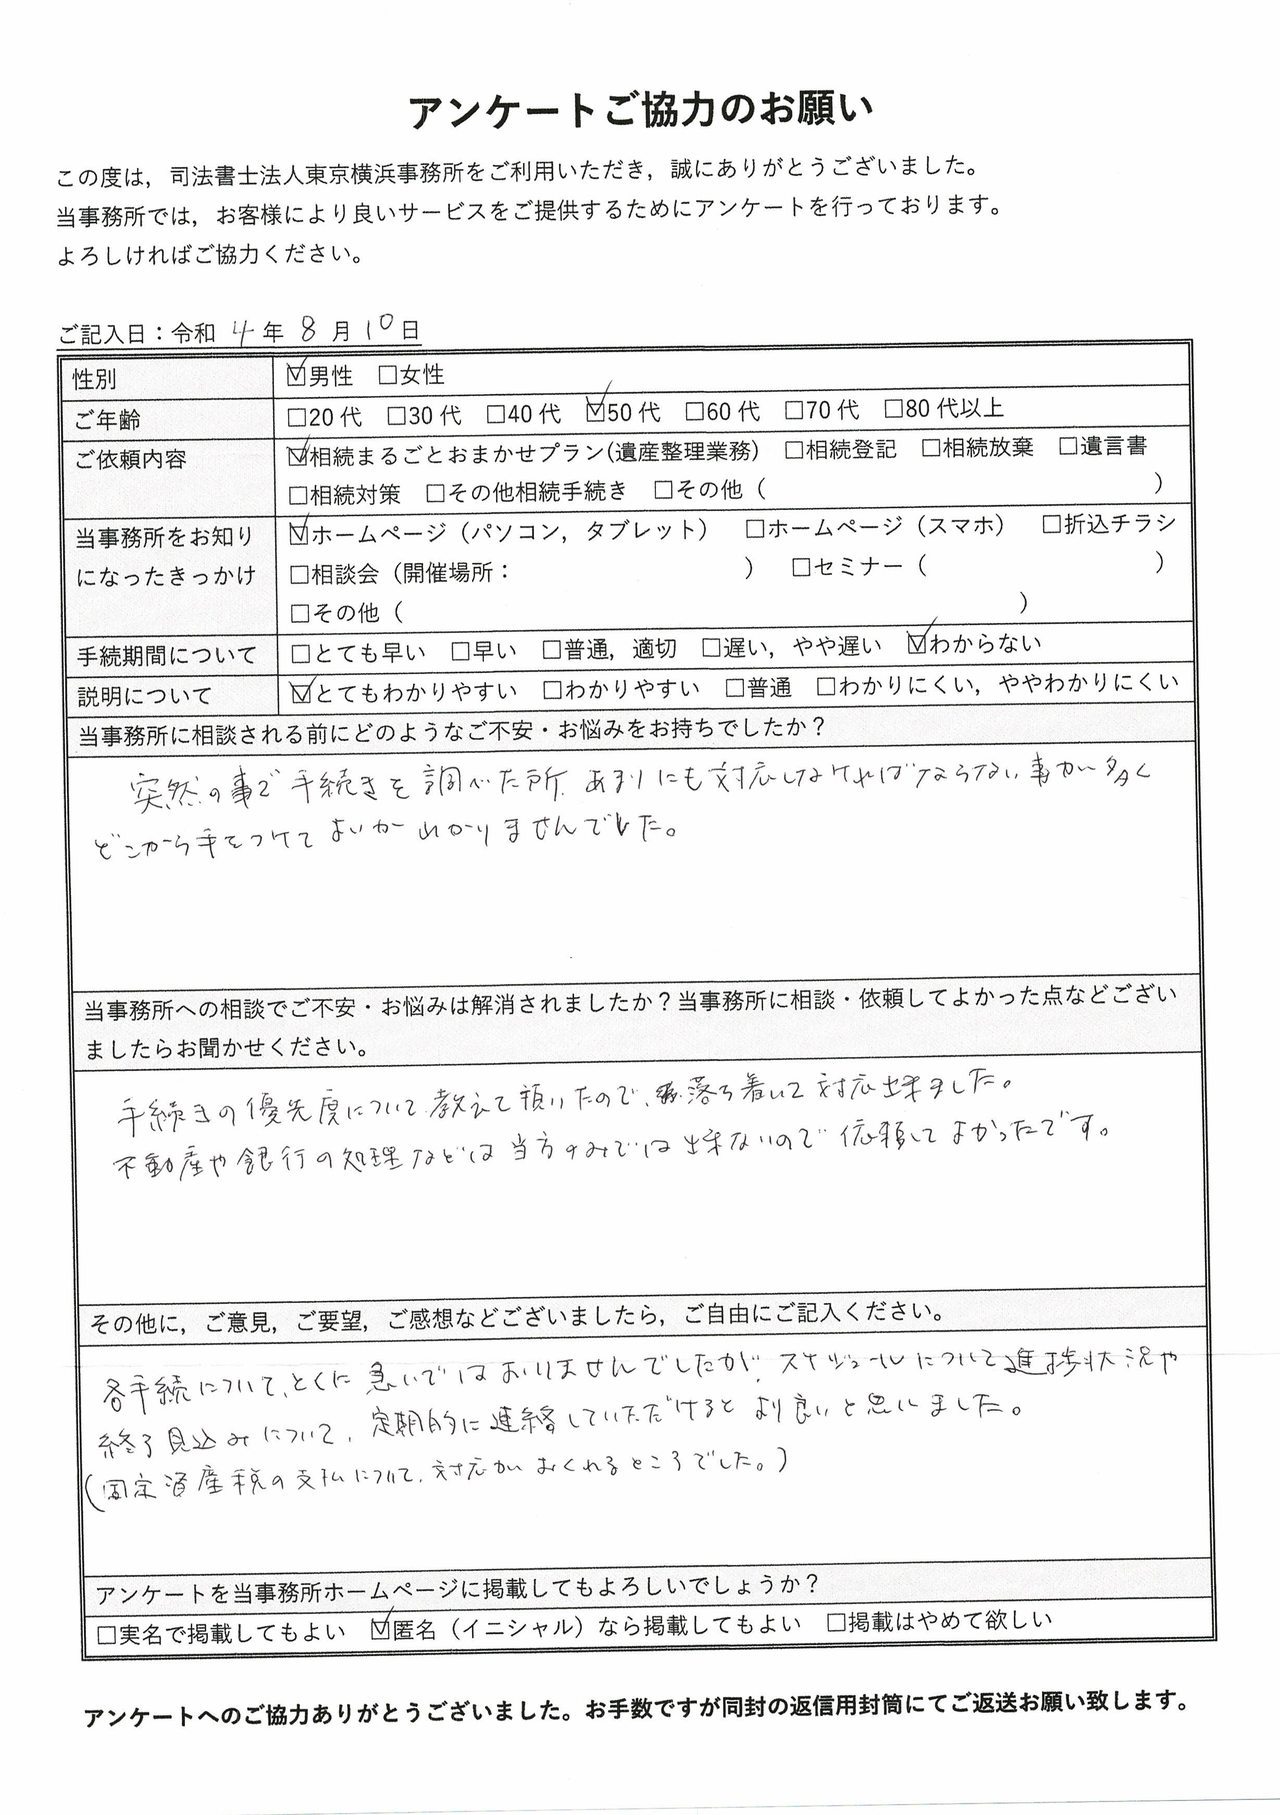 アンケートご協力のお願い
この度は，司法書士法人東京横浜事務所をご利用いただき，誠にありがとうございました。
当事務所では，お客様により良いサービスをご提供するためにアンケートを行っております。
よろしければご協力ください。
ご記入日：令和 4 年 8 月 10 日
性別 ☑男性 □女性
ご年齢 □20代 □30代 □40代 ☑50代 □60代 □70代 □80代以上
ご依頼内容 ☑相続まるごとおまかせプラン(遺産整理業務) □相続登記 □相続放棄 □遺言書
□相続対策 □その他相続手続き □その他（ ）
当事務所をお知り ☑ホームページ（パソコン，タブレット） □ホームページ（スマホ） □折込チラシ
になったきっかけ □相談会（開催場所： ） □セミナー（ ）
□その他（ ）
手続期間について □とても早い □早い □普通，適切 □遅い，やや遅い ☑わからない
説明について ☑とてもわかりやすい □わかりやすい □普通 □わかりにくい，ややわかりにくい
当事務所に相談される前にどのようなご不安・お悩みをお持ちでしたか？
突然の事で手続きを調べた所、あまりにも対応しなければならない事が多く
どこから手をつけてよいかわかりませんでした。
当事務所への相談でご不安・お悩みは解消されましたか？当事務所に相談・依頼してよかった点などござい
ましたらお聞かせください。
手続きの優先度について教えて頂いたので、落ち着いて対応出来ました。
不動産や銀行の処理などは当方のみでは出来ないので依頼してよかったです。
その他に，ご意見，ご要望，ご感想などございましたら，ご自由にご記入ください。
各手続について、とくに急いではおりませんでしたが、スケジュールについて進捗状況や
終了見込みについて、定期的に連絡していただけるとより良いと思いました。
(固定資産税の支払について、対応がおくれるところでした。)
アンケートを当事務所ホームページに掲載してもよろしいでしょうか？
□実名で掲載してもよい ☑匿名（イニシャル）なら掲載してもよい □掲載はやめて欲しい
アンケートへのご協力ありがとうございました。お手数ですが同封の返信用封筒にてご返送お願い致します。